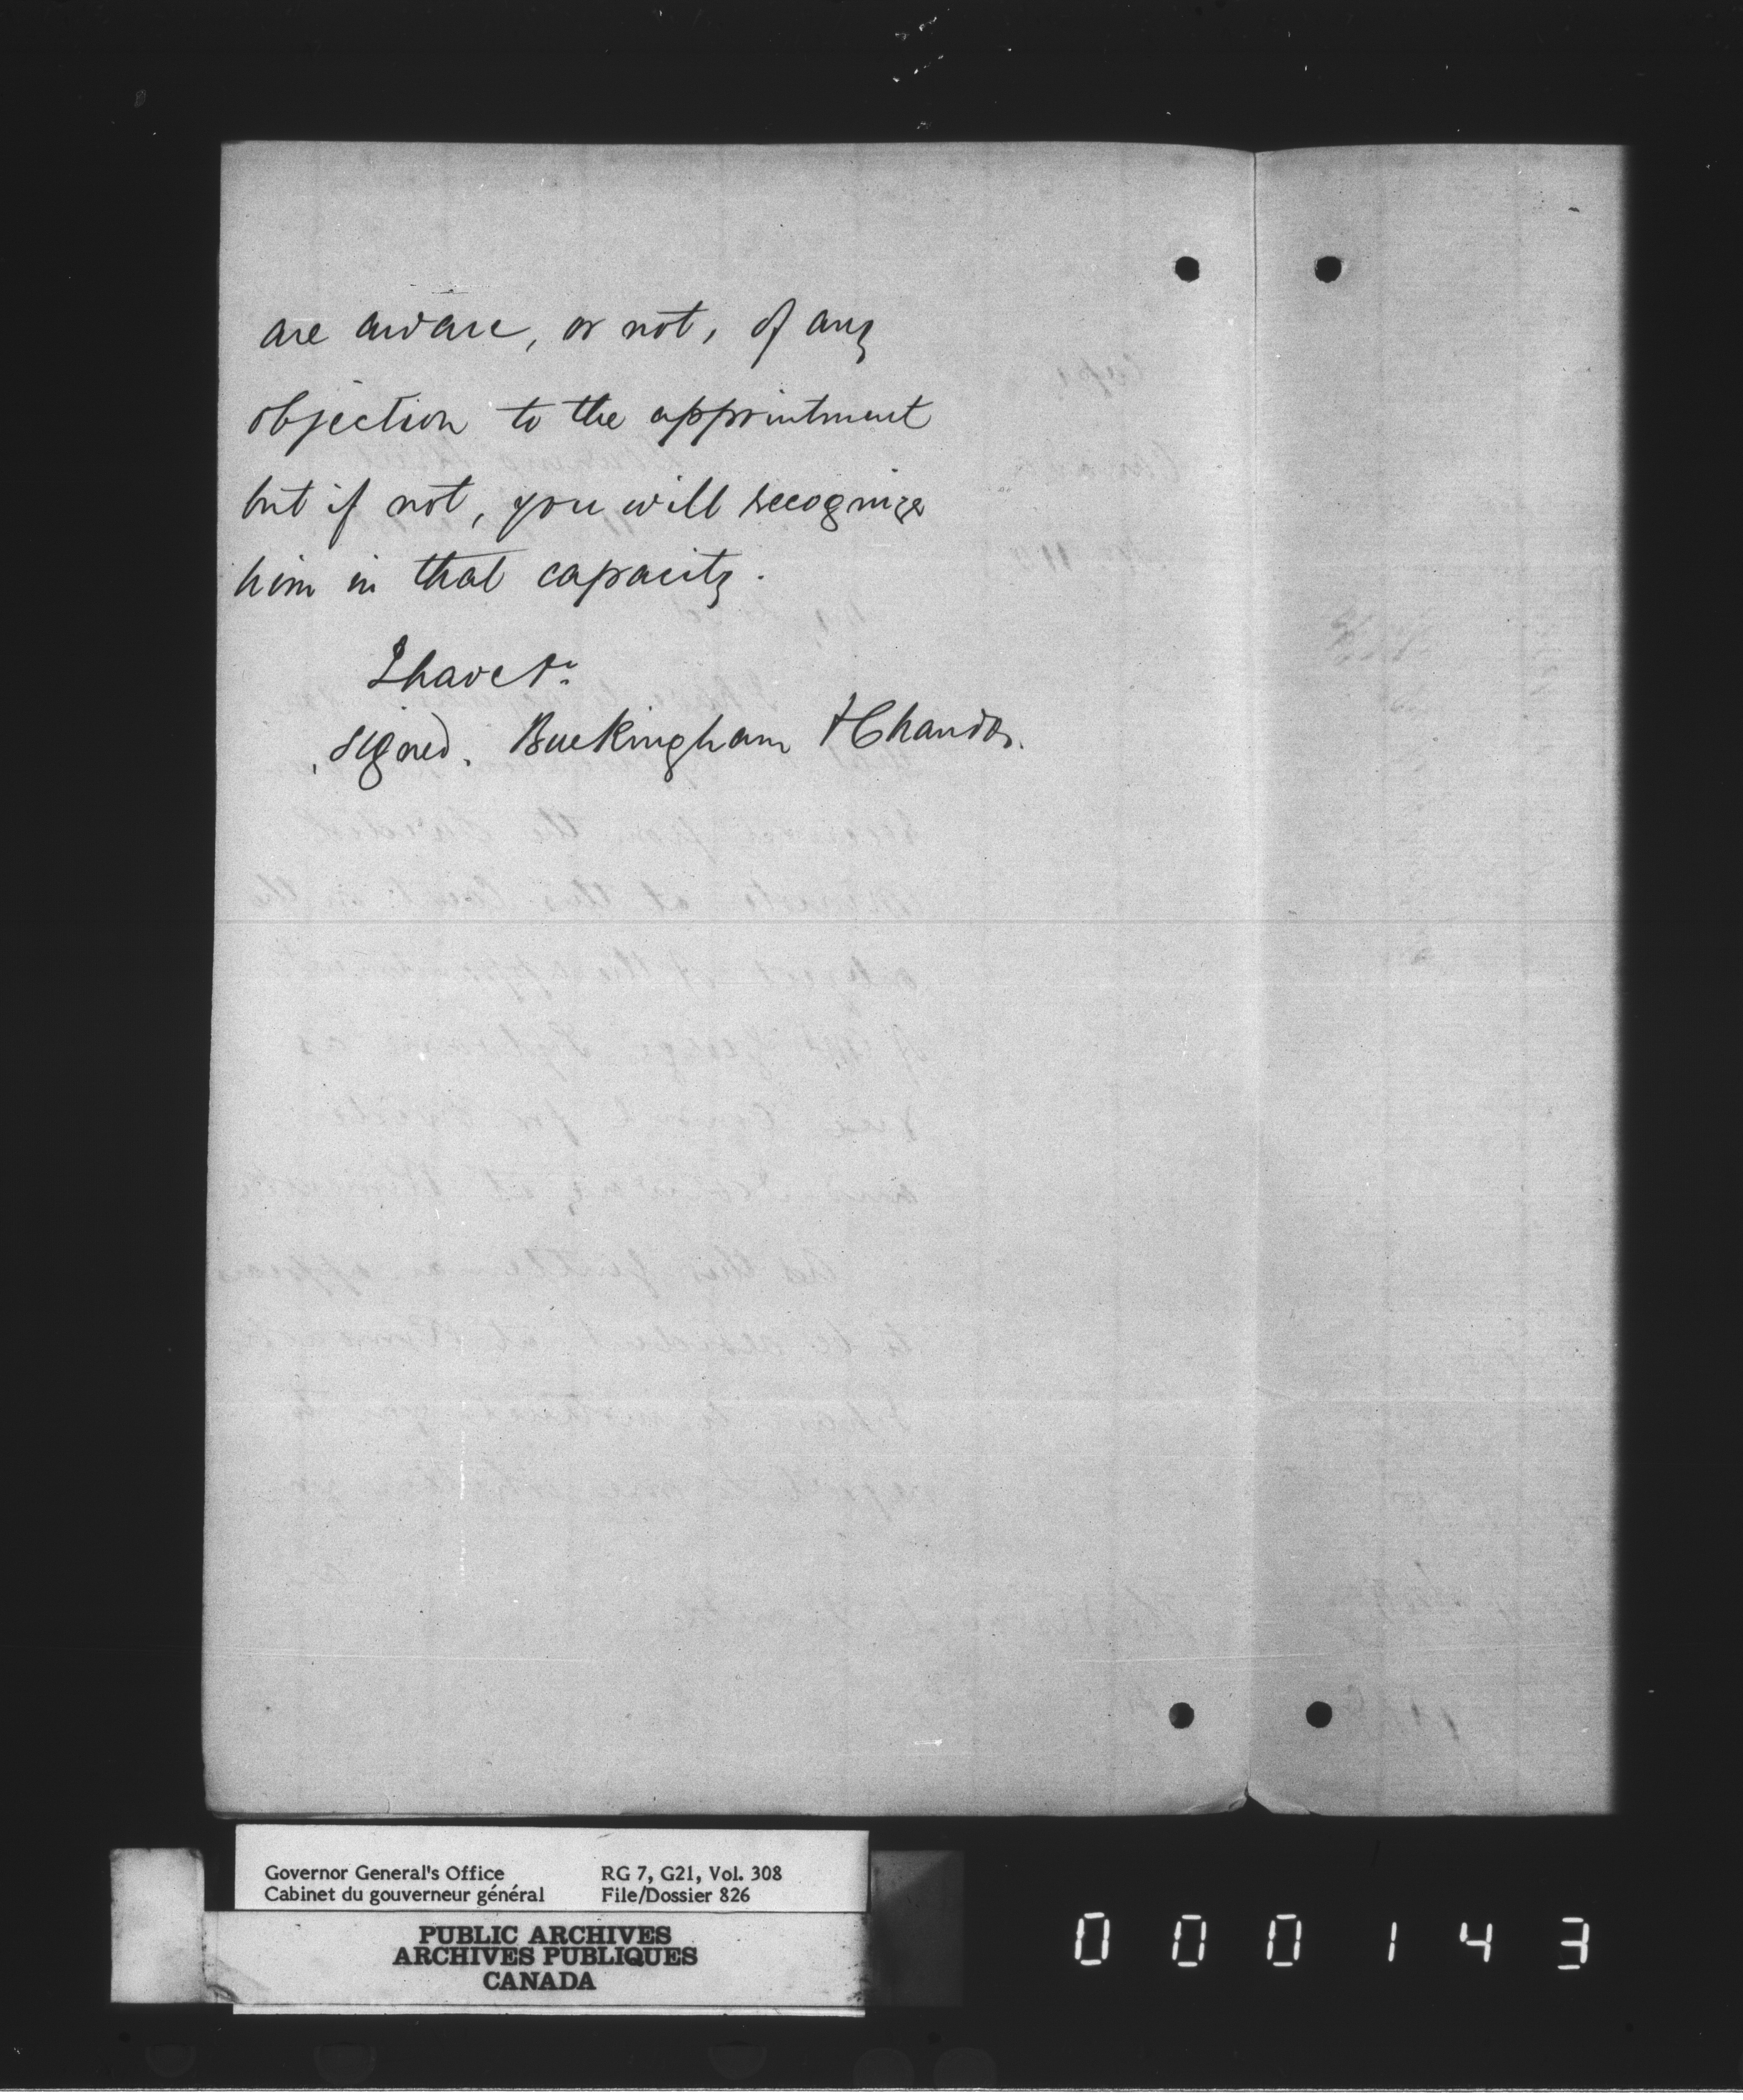 are aware, or not, of any
objection to the appointment
but if not, you will recognize
him in that capacity.
I have &c
signed. Buckingham & Chandos.
Governor General's Office RG 7, G21, Vol. 308
Cabinet du gouverneur général File/Dossier 826
PUBLIC ARCHIVES
ARCHIVES PUBLIQUES
CANADA
000143